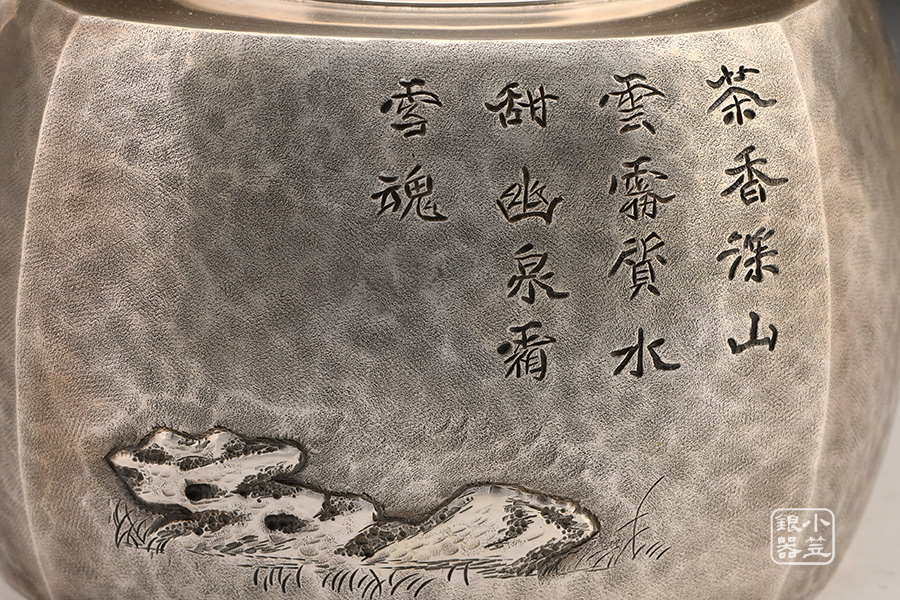 茶香深山
雲霧質水
甜幽泉霜
雪魂
小笠
銀器